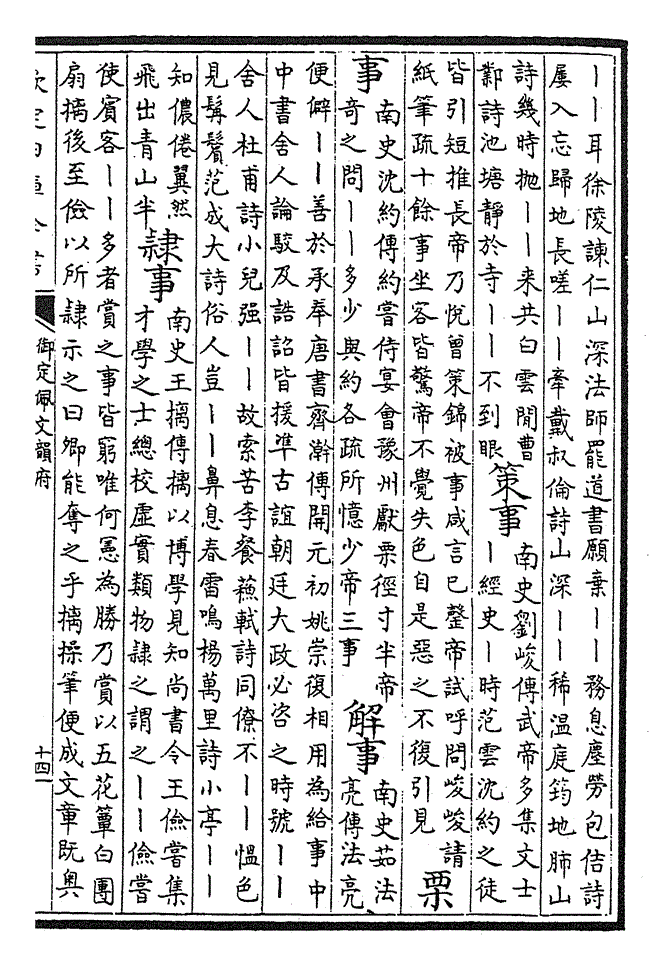 ｜｜耳徐陵諫仁山深法師罷道書願棄｜｜務息塵勞包佶詩
屢入忘歸地長嗟｜｜牽戴叔倫詩山深｜｜稀溫庭筠地肺山
詩幾時抛｜｜来共白雲閒曹
鄴詩池塘靜於寺｜｜不到眼
策事
南史劉峻傳武帝多集文士
｜經史｜時范雲沈約之徒
皆引短推長帝乃悅曾策錦被事咸言已罄帝試呼問峻峻請
紙筆疏十餘事坐客皆驚帝不覺失色自是惡之不復引見
栗
事
南史沈約傳約嘗侍宴會豫州獻栗徑寸半帝
奇之問｜｜多少與約各疏所憶少帝三事
解事
南史茹法
亮傳法亮
便僻｜｜善於承奉唐書齊澣傳開元初姚崇復相用為給事中
中書舍人論駮及誥詔皆援凖古誼朝廷大政必咨之時號｜｜
舍人杜甫詩小兒强｜｜故索苦李餐蘇軾詩同僚不｜｜愠色
見髯鬢范成大詩俗人豈｜｜鼻息春雷鳴楊萬里詩小亭｜｜
知儂倦翼然
飛出青山半
隷事
南史王摛傳摛以博學見知尚書令王儉嘗集
才學之士總校虛實類物隷之謂之｜｜儉嘗
使賓客｜｜多者賞之事皆窮唯何憲為勝乃賞以五花簟白團
扇摛後至儉以所隷示之曰卿能奪之乎摛操筆便成文章既奥
欽定四庫全書
御定佩文韻府
十四